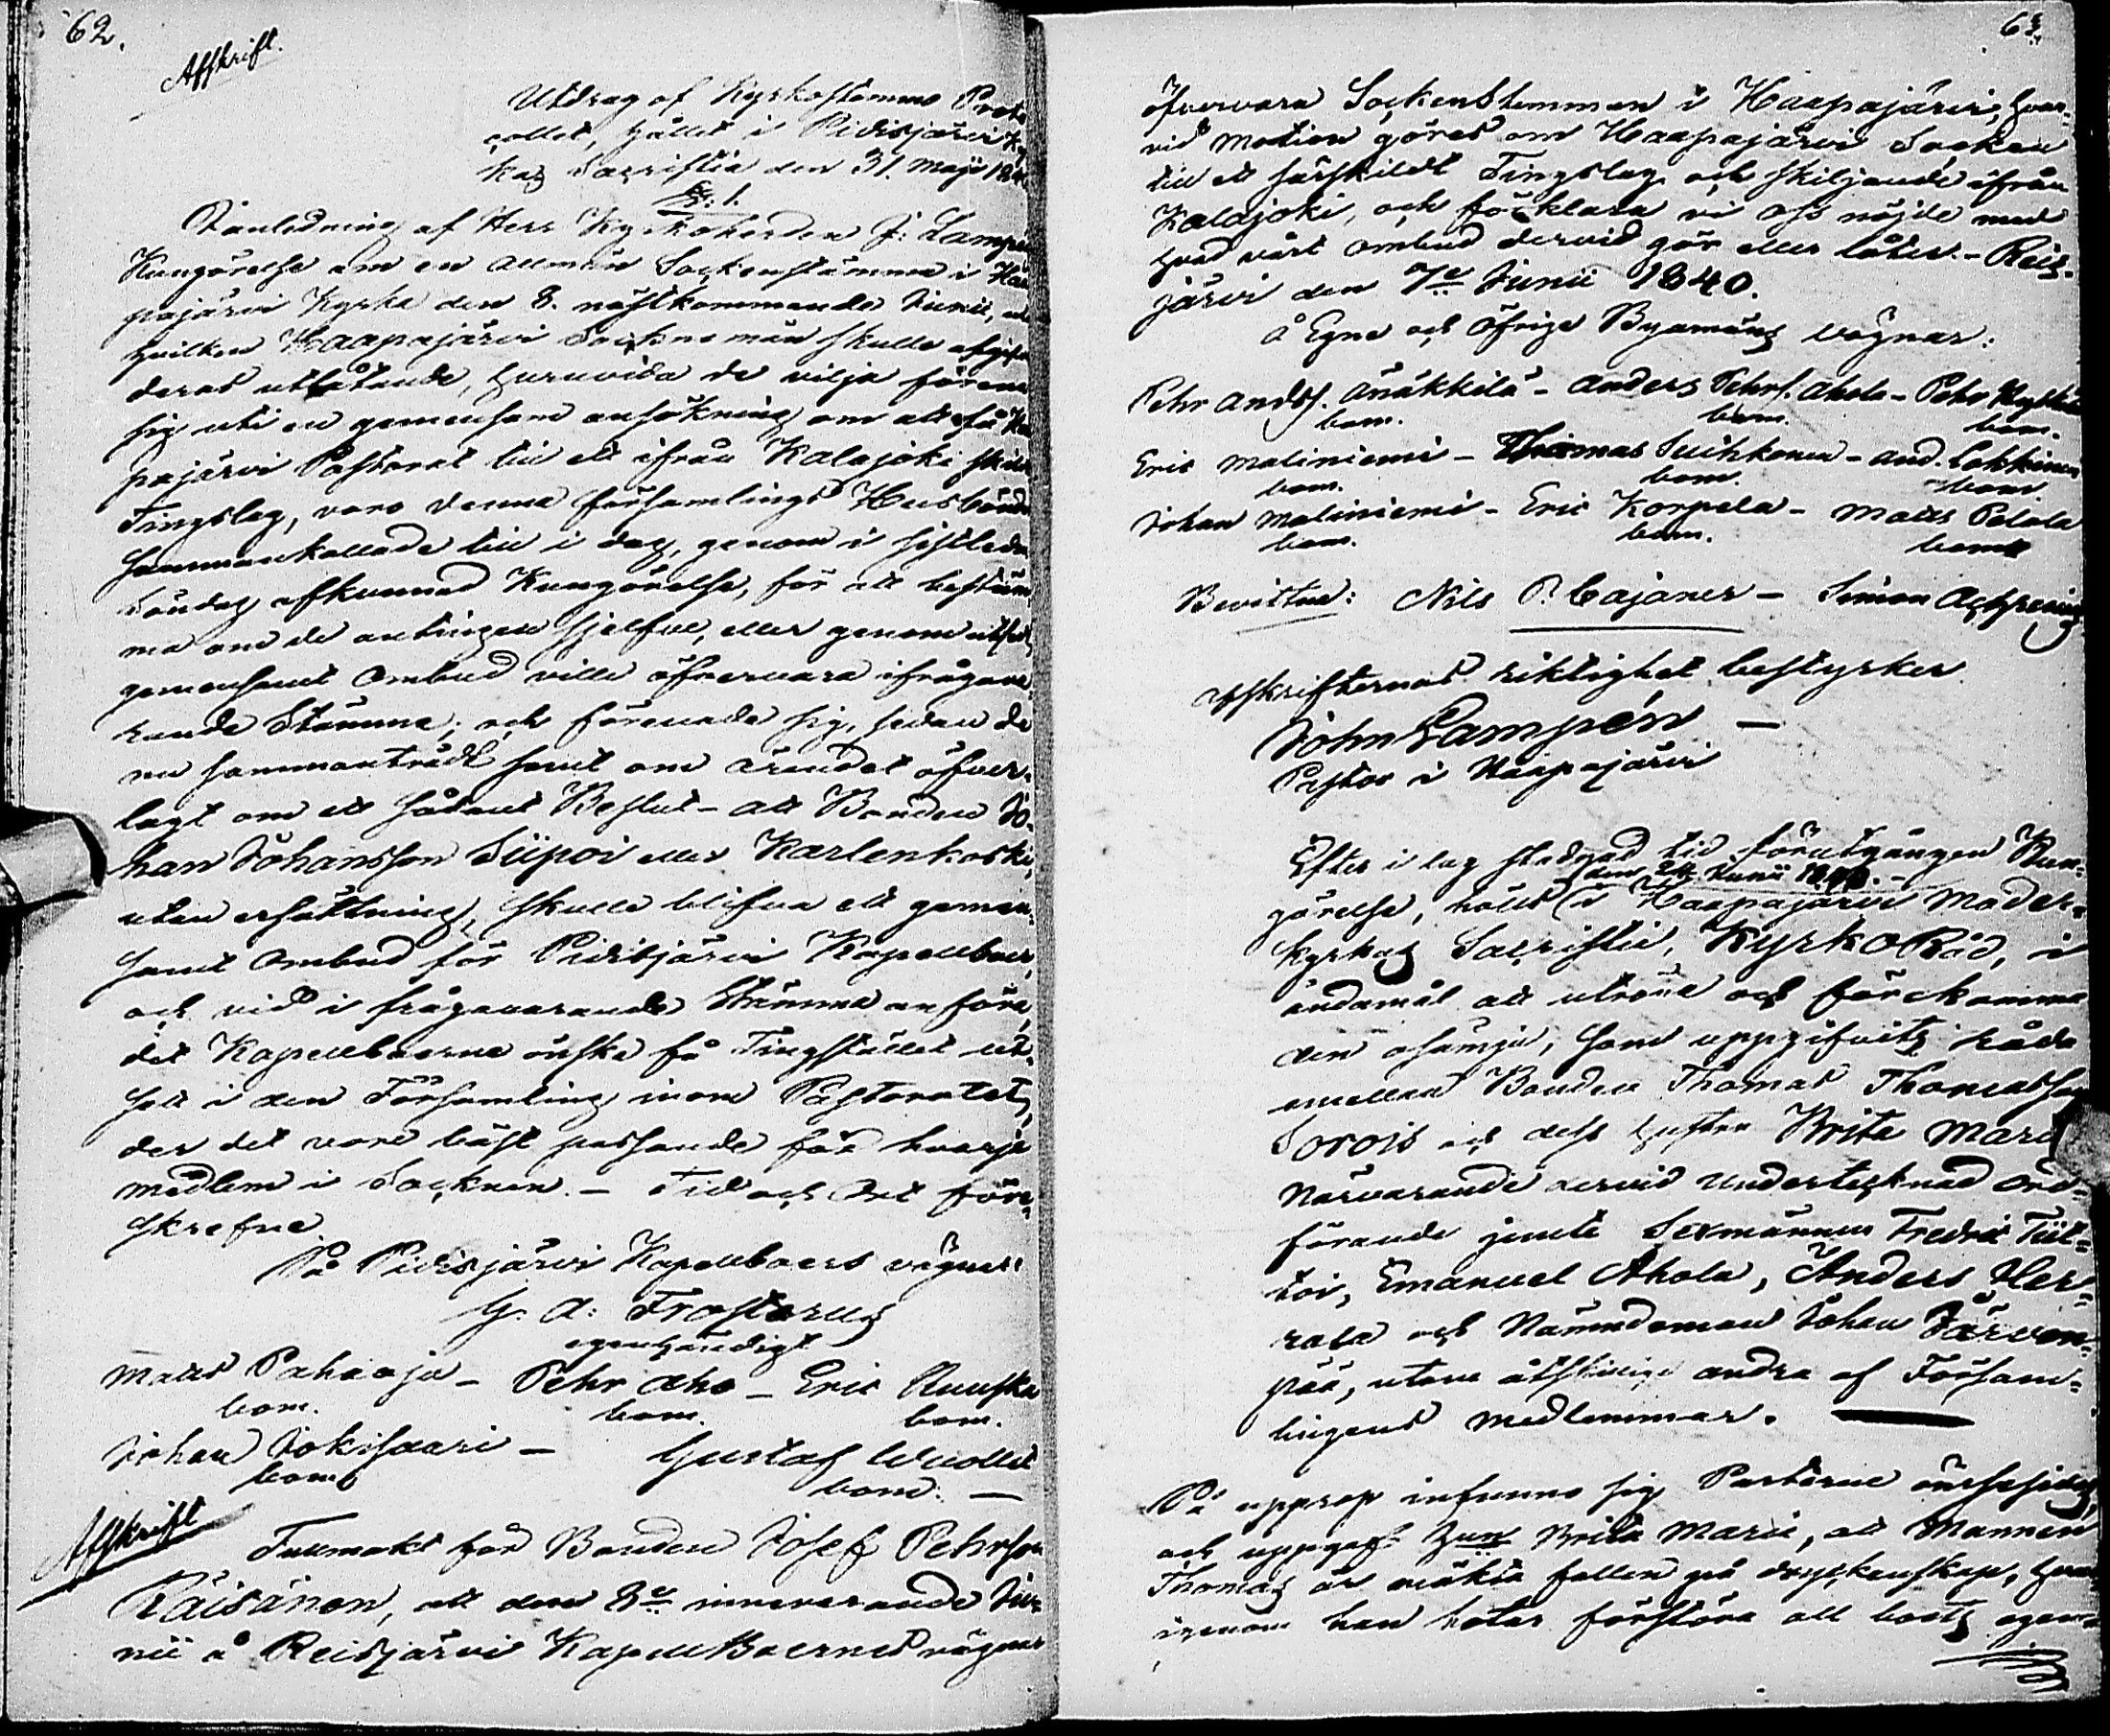 62.
Afskrift.
Utdrag af Kyrkostämmo Proto
collet, hållet i Pidisjärvi Ky
kas Sacristia den 31. Maji 184
§. 1.
I anledning af Herr Kyrkoherden J: Lampén
Kungörelse om en allmän Sockenstämma i Haa
pajärvi Kyrka den 8. nästkommande Junii, vid
hvilken Haapajärvi Sockne män skulle afgifva
deras utlåtande, huruvida de vilja förena
sig uti en gemensam ansökning om att få Haa
pajärvi Pastorat till ett ifrån Kalajoki skildt
Tingslag, voro denna församlings Husbönd
sammankallade till i dag, genom i sistledne
Söndag afkunnad Kungörelse, för att bestäm
ma om de antingen sjelfve, eller genom utsedt
gemensamt Ombud ville öfvervara ifrågava
rande Stämma; och förenade sig, sedan de
nu sammanträdt samt om ärendet öfver-
lagt om ett sådant Beslut - att Bonden Jo-
han Johansson Siipoi eller Karlenkoski,
utan ersättning, skulle blifva ett gemen-
samt Ombud för Pidisjärvi Kapellboer,
och vid i frågavarande Stämma anföra,
det Kapellboerne önska få Tingstället ut-
satt i den Församling inom Pastoratet,
der det vore bäst passande för hvarje
medlem i Socknen. - Tid och Ort före-
skrefne.
På Pidisjärvi Kapellboers vägnar:
G. A: Frosterus
egenhändigt
Matts Pahaoja - Pehr Aho - Eric Ruuska
bom. bom. bom.
Johan Jokisaari - Gustaf Wuollet
bom. bom. -
Afskrift
Fullmakt för Bonden Josef Pehrson
Räisänen, att den 8de innevarande Ju-
nii å Reisjärvi Kapell Boernes vägnar
63.
öfvervara Sockenstemman i Haapajärvi, hvar-
vid Motion göres om Haapajärvi Socken
till ett särskildt Tingslag och skiljande ifrån
Kalajoki, och förklara vi oss nöjde med
hvad vårt ombud dervid gör eller låter. - Reis-
järvi den 7de Junii 1840.
å Egne och öfrige Byamäns vägnar:
Pehr Andss. Änäkkilä - Anders Pehrs. Ahola - Pehr
bom. bom. bom.
Eric Maliniemi - Thomas Suihkonen - And. Lokkinen
bom. bom. bom.
Johan Maliniemi - Eric Korpela - Matts Pelola
bom. bom. bom.
Bevittna: Nils P. Cajaner - Simon
Afskrifternas riktighet bestyrker
John Lampén -
Pastor i Haapajärvi
Efter i lag stadgad tid förutgången Kun-
den 24 Junii 1840. -
görelse, hölts i Haapajärvi Moder-
kyrkas Sacristie, KyrkoRåd, i
ändamål att utröna och förekomma
den osämja, som uppgifvits råda
emellan Bonden Thomas Thomasson
Sorois och dess hustru Brita Maria
Närvarande dervid undertecknad Ord-
förande jemte Sexmännen Fredric Tiit-
toi, Emanuel Ahola, Anders Her-
rala och Nämndeman Johan Järven-
pää, utom åtskillige andra af Försam-
lingens medlemmar.
På upprop infunno sig Parterne ömsesidigt,
och uppgaf hust. Brita Maria, att Mannen
Thomas är mäkta fallen på dryckenskap, hvar-
igenom han hotar förstöra all boets egen-